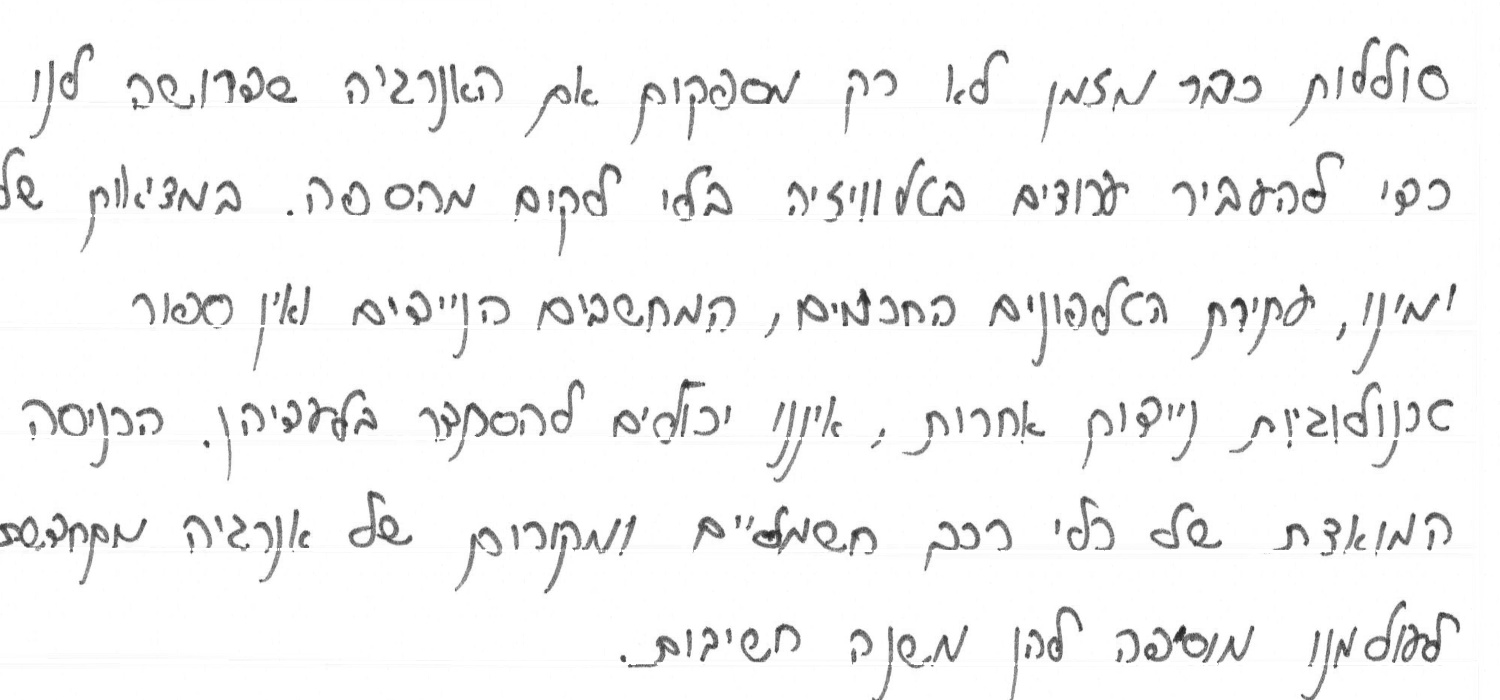 סוללות כבר מזמן לא רק מספקות את האנרגיה שדרושה לנו
כדי להעביר ערוצים בטלוויזיה בלי לקום מהספה. במציאות של
ימינו, עתירת הטלפונים החכמים, המחשבים הניידים ואין ספור
טכנולוגיות ניידות אחרות, איננו יכולים להסתדר בלעדיהן. הכניסה
המואצת של כלי רכב חשמליים ומקורות של אנרגיה מתחדשת
לעולמנו מוסיפה להן משנה חשיבות.